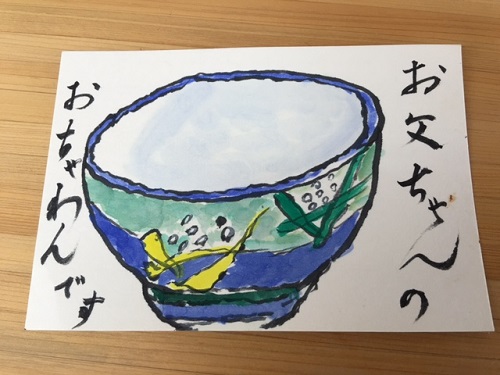 お父ちゃんの
おちゃわんです